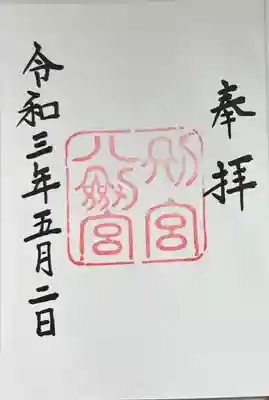 奉拝
別宮
八劔宮
令和三年五月二日